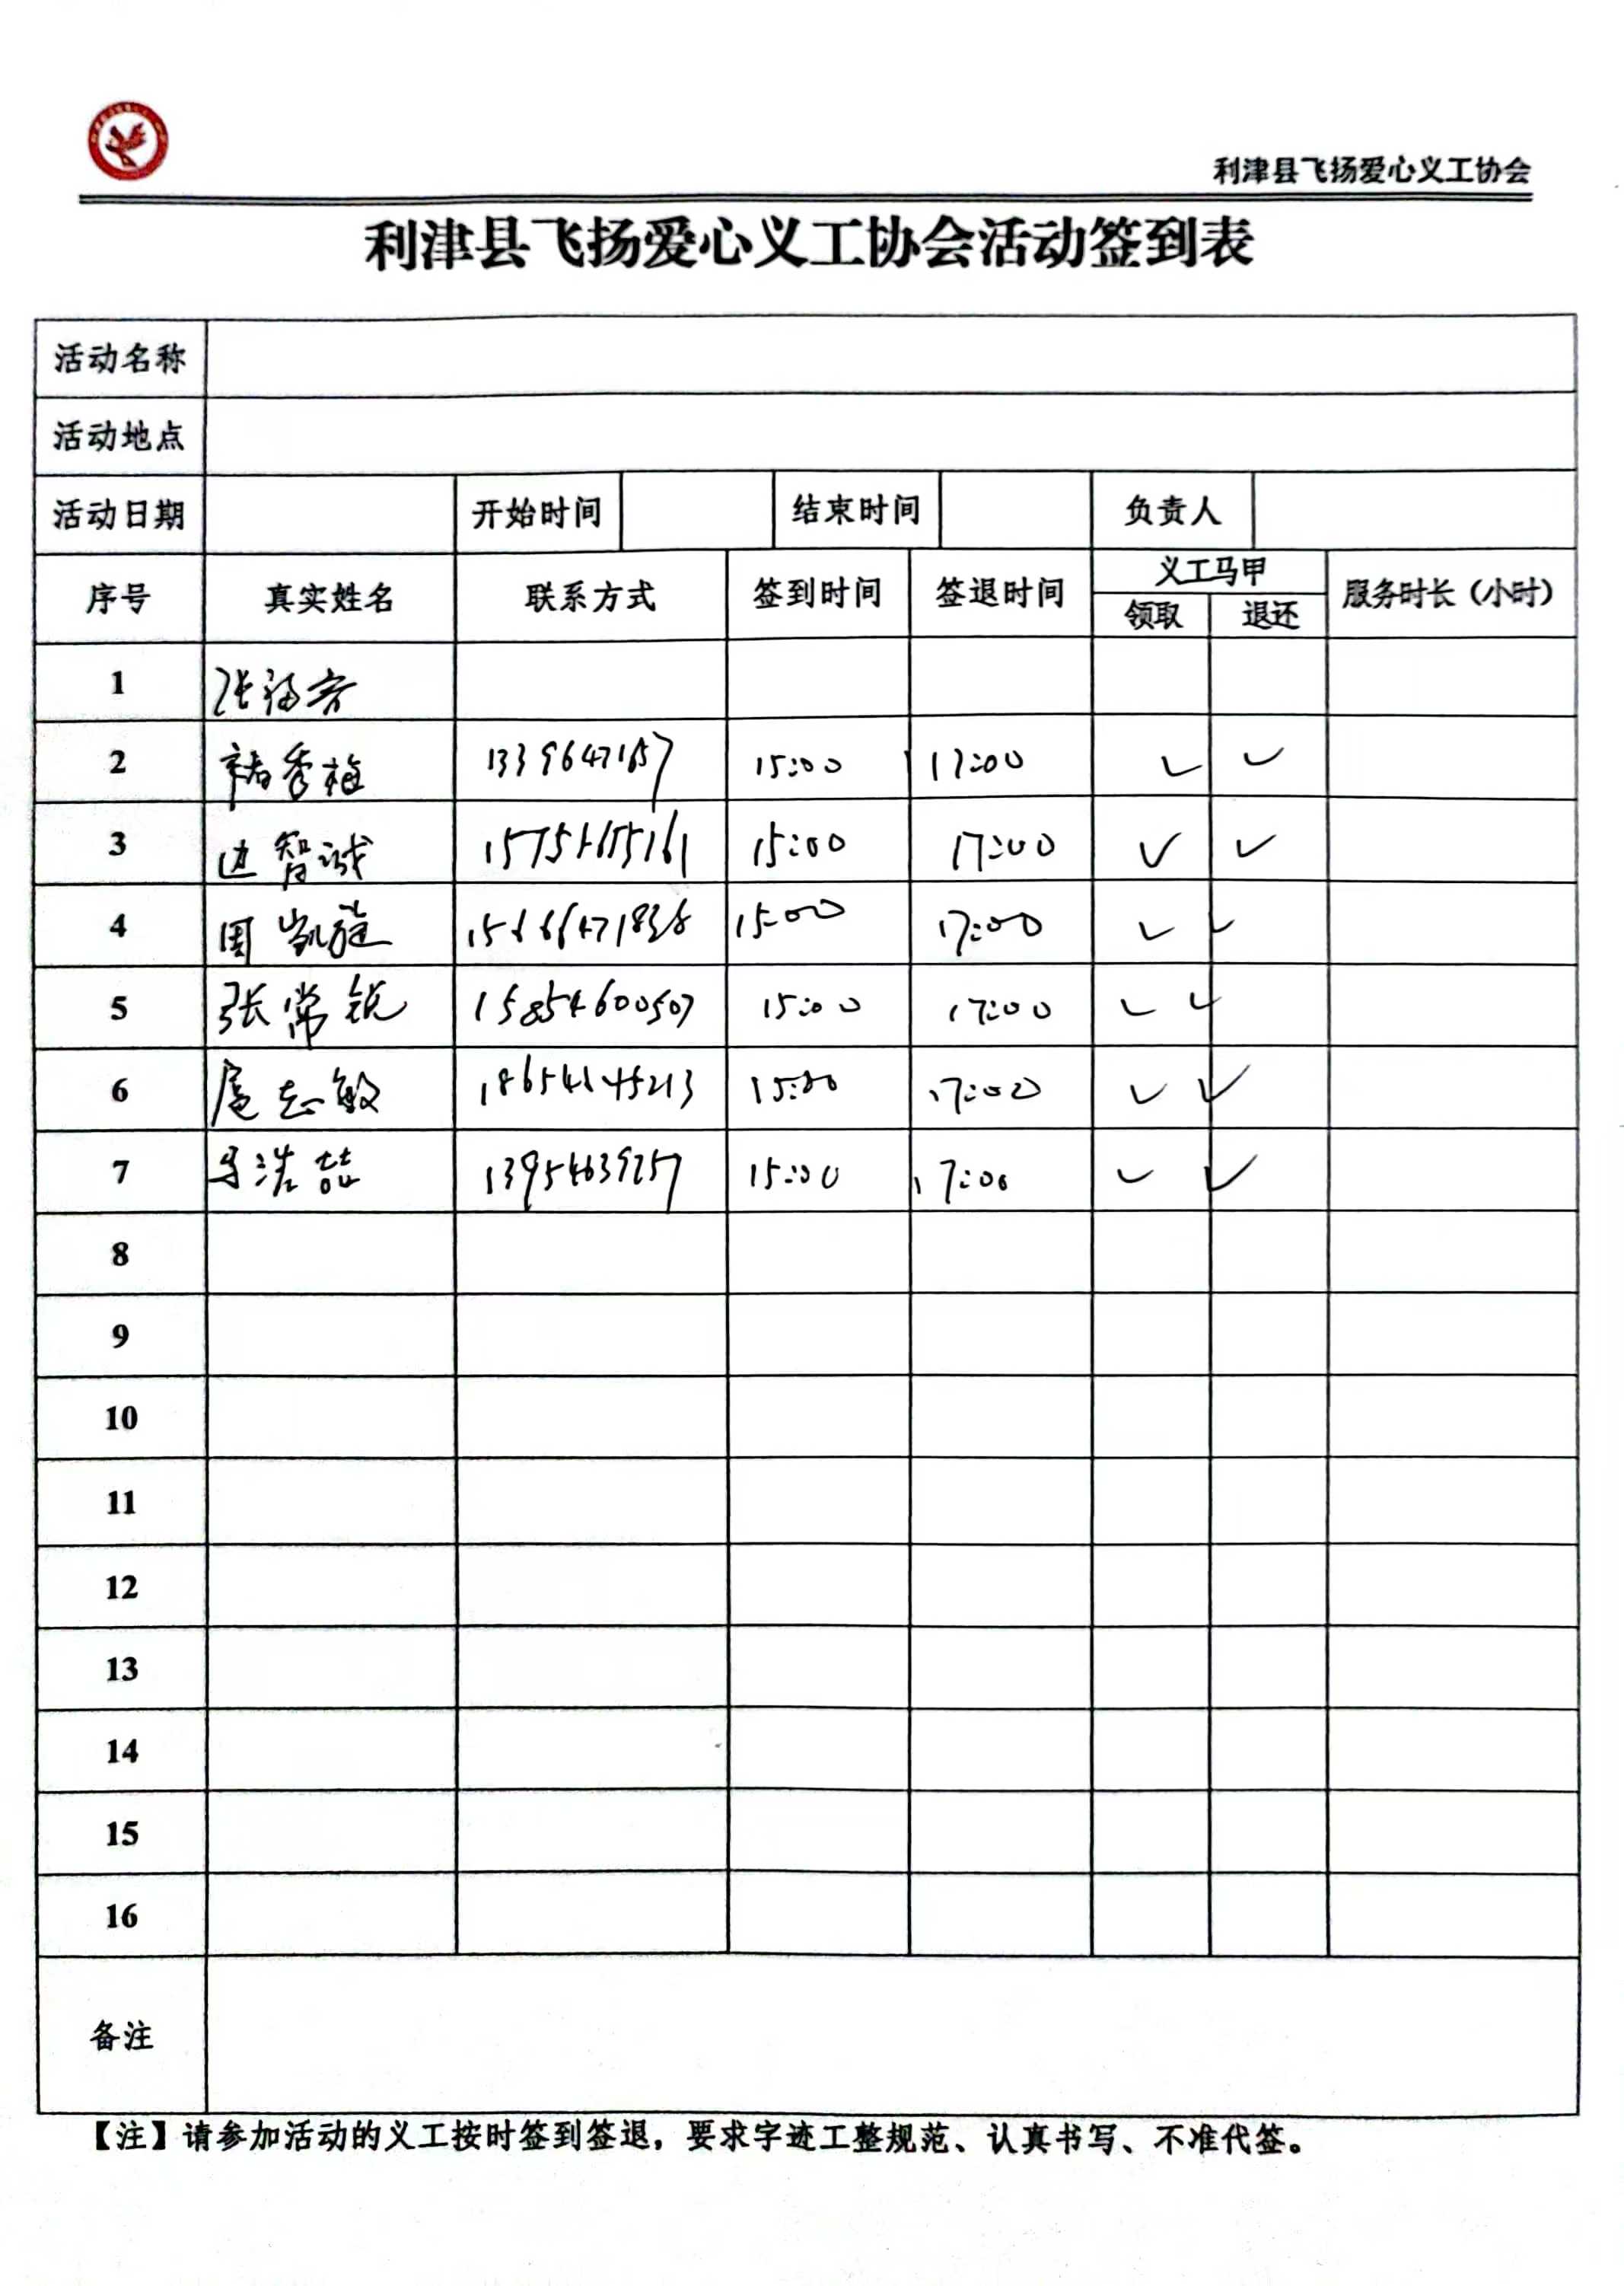 利津县飞扬爱心义工协会
利津县飞扬爱心义工协会活动签到表
活动名称
活动地点
活动日期 开始时间 结束时间 负责人
序号 真实姓名 联系方式 签到时间 签退时间 义工马甲 服务时长（小时）
领取 退还
1 张福
2 褚秀梅 15:00 17:00 ✓ ✓
3 边智诚 15:00 17:00 ✓ ✓
4 周凯旋 15:00 17:00 ✓ ✓
5 张常锐 15854600507 15:00 17:00 ✓ ✓
6 扈志敏 15:00 17:00 ✓ ✓
7 马浩喆 13954639757 15:00 17:00 ✓ ✓
8
9
10
11
12
13
14
15
16
备注
【注】请参加活动的义工按时签到签退，要求字迹工整规范、认真书写、不准代签。